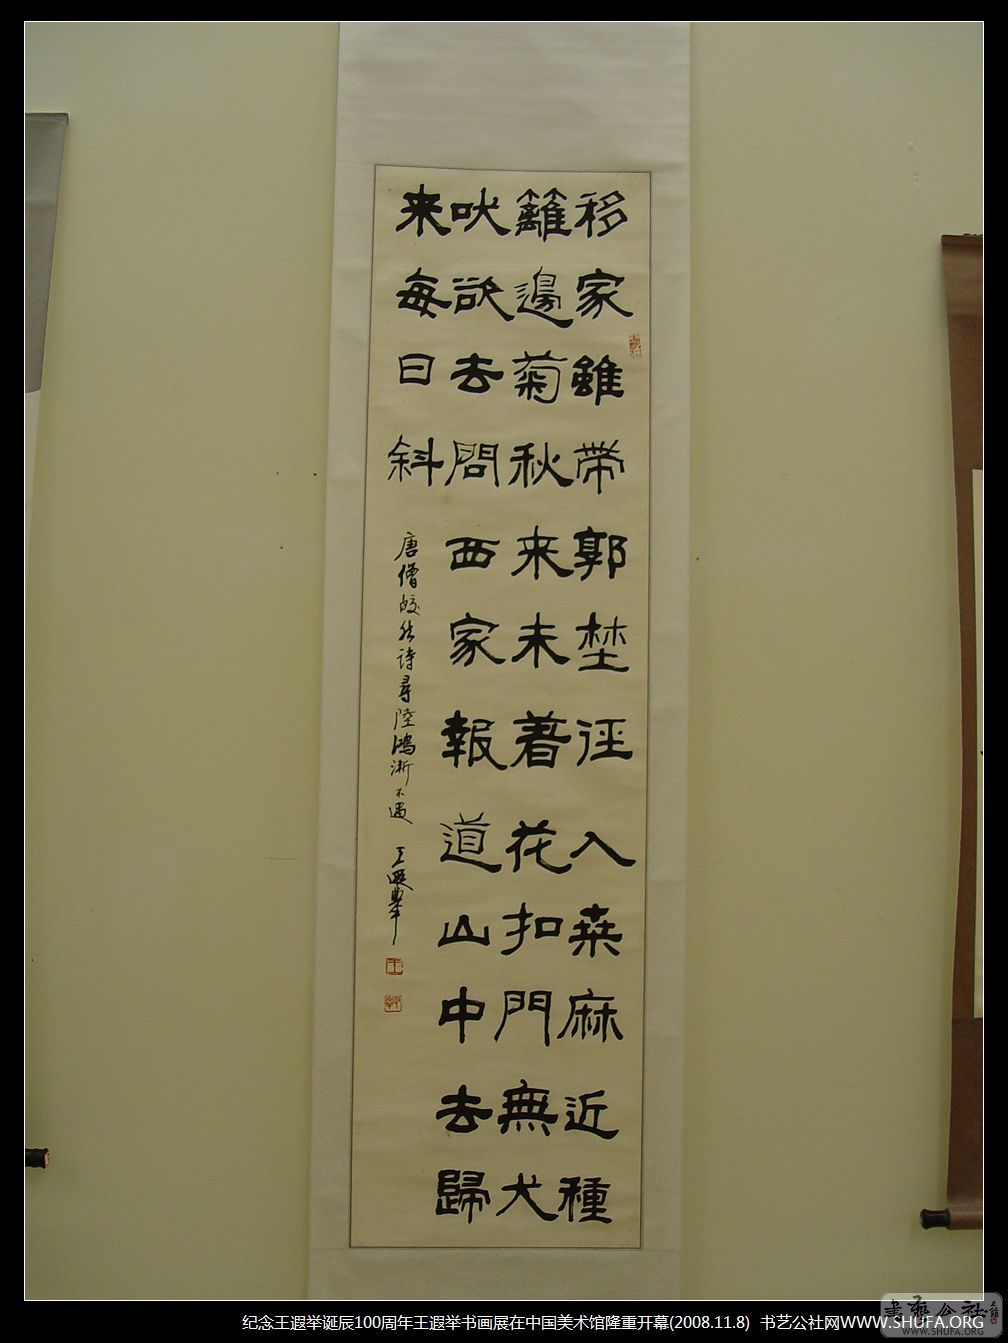 移家雖帶郭埜徑入桒麻近種
籬邊菊秋来未著花扣門無犬
吠欲去問西家報道山中去歸
来每日斜
唐僧皎然诗尋陸鴻漸不遇 王遐舉
纪念王遐举诞辰100周年王遐举书画展在中国美术馆隆重开幕(2008.11.8) 书艺公社网WWW.SHUFA.ORG
书艺公社
WWW.SHUFA.ORG